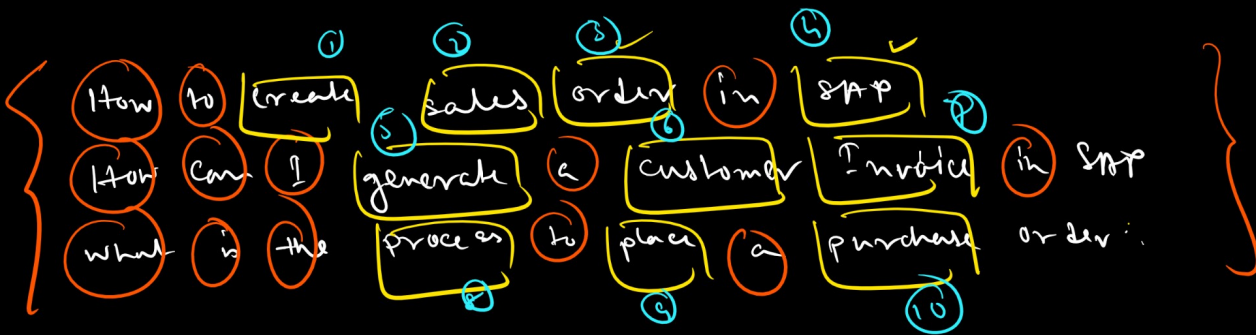 ① ② ③ ✓ ④ ✓
How to create sales order in SAP
⑤ ⑥ ⑦
How can I generate a customer Invoice in SAP
what is the process to place a purchase order.
⑧ ⑨ ⑩